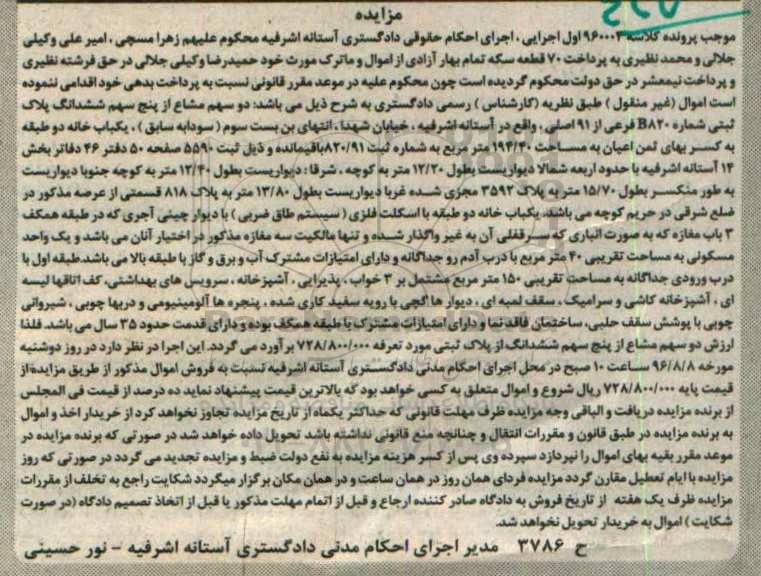 مزایده
موجب پرونده کلاسه ۹۶۰۰۰۲ اول اجرایی ، اجرای احکام حقوقی دادگستری آستانه اشرفیه محکوم علیهم زهرا مسچی ، امیر علی وکیلی
جلالی و محمد نظیری به پرداخت ۷۰ قطعه سکه تمام بهار آزادی از اموال و ماترک مورث خود حمیدرضا وکیلی جلالی در حق فرشته نظیری
و پرداخت نیمعشر در حق دولت محکوم گردیده است چون محکوم علیه در موعد مقرر قانونی نسبت به پرداخت بدهی خود اقدامی ننموده
است اموال (غیر منقول ) طبق نظریه (کارشناس ) رسمی دادگستری به شرح ذیل می باشد: دو سهم مشاع از پنج سهم ششدانگ پلاک
ثبتی شماره B۸۲۰ فرعی از ۹۱ اصلی ، واقع در آستانه اشرفیه ، خیابان شهدا ، انتهای بن بست سوم ( سودابه سابق ) ، یکباب خانه دو طبقه
به کسر بهای ثمن اعیان به مساحت ۱۹۴/۴۰ متر مربع به شماره ثبت ۸۲۰/۹۱ باقیمانده و ذیل ثبت ۵۵۹۰ صفحه ۵۰ دفتر ۴۶ دفاتر بخش
۱۴ آستانه اشرفیه با حدود اربعه شمالا دیواریست بطول ۱۲/۲۰ متر به کوچه ، شرقا : دیواریست بطول ۱۲/۴۰ متر به کوچه جنوبا دیواریست
به طور منکسر بطول ۱۵/۷۰ متر به پلاک ۳۵۹۲ مجزی شده غربا دیواریست بطول ۱۳/۸۰ متر به پلاک ۸۱۸ قسمتی از عرصه مذکور در
ضلع شرقی در حریم کوچه می باشد. یکباب خانه دو طبقه با اسکلت فلزی ( سیستم طاق ضربی ) با دیوار چینی آجری که در طبقه همکف
۳ باب مغازه که به صورت انباری که سر قفلی آن به غیر واگذار شده و تنها مالکیت سه مغازه مذکور در اختیار آنان می باشد و یک واحد
مسکونی به مساحت تقریبی ۴۰ متر مربع با درب آدم رو جداگانه و دارای امتیازات مشترک آب و برق و گاز با طبقه بالا می باشد. طبقه اول با
درب ورودی جداگانه به مساحت تقریبی ۱۵۰ متر مربع مشتمل بر ۳ خواب ، پذیرایی ، آشپزخانه ، سرویس های بهداشتی، کف اتاقها لیسه
ای ، آشپزخانه کاشی و سرامیک ، سقف لمبه ای ، دیوار ها گچی با رویه سفید کاری شده ، پنجره ها آلومینیومی و دربها چوبی ، شیروانی
چوبی با پوشش سقف حلبی، ساختمان فاقد نما و دارای امتیازات مشترک با طبقه همکف بوده و دارای قدمت حدود ۳۵ سال می باشد. فلذا
ارزش دو سهم مشاع از پنج سهم ششدانگ از پلاک ثبتی مورد تعرفه ۷۲۸/۸۰۰/۰۰۰ بر آورد می گردد. این اجرا در نظر دارد در روز دوشنبه
مورخه ۹۶/۸/۸ ساعت ۱۰ صبح در محل اجرای احکام مدنی دادگستری آستانه اشرفیه نسبت به فروش اموال مذکور از طریق مزایده از
قیمت پایه ۷۲۸/۸۰۰/۰۰۰ ریال شروع و اموال متعلق به کسی خواهد بود که بالاترین قیمت پیشنهاد نماید ده درصد از قیمت فی المجلس
از برنده مزایده دریافت و الباقی وجه مزایده ظرف مهلت قانونی که حداکثر یکماه از تاریخ مزایده تجاوز نخواهد کرد از خریدار اخذ و اموال
به برنده مزایده در طبق قانون و مقررات انتقال و چنانچه منع قانونی نداشته باشد تحویل داده خواهد شد در صورتی که برنده مزایده در
موعد مقرر بقیه بهای اموال را نپردازد سپرده وی پس از کسر هزینه مزایده به نفع دولت ضبط و مزایده تجدید می گردد در صورتی که روز
مزایده با ایام تعطیل مقارن گردد مزایده فردای همان روز در همان ساعت و در همان مکان برگزار میگردد شکایت راجع به تخلف از مقررات
مزایده ظرف یک هفته از تاریخ فروش به دادگاه صادر کننده ارجاع و قبل از اتمام مهلت مذکور یا قبل از اتخاذ تصمیم دادگاه (در صورت
شکایت ) اموال به خریدار تحویل نخواهد شد.
ح ۳۷۸۶ مدیر اجرای احکام مدنی دادگستری آستانه اشرفیه - نور حسینی